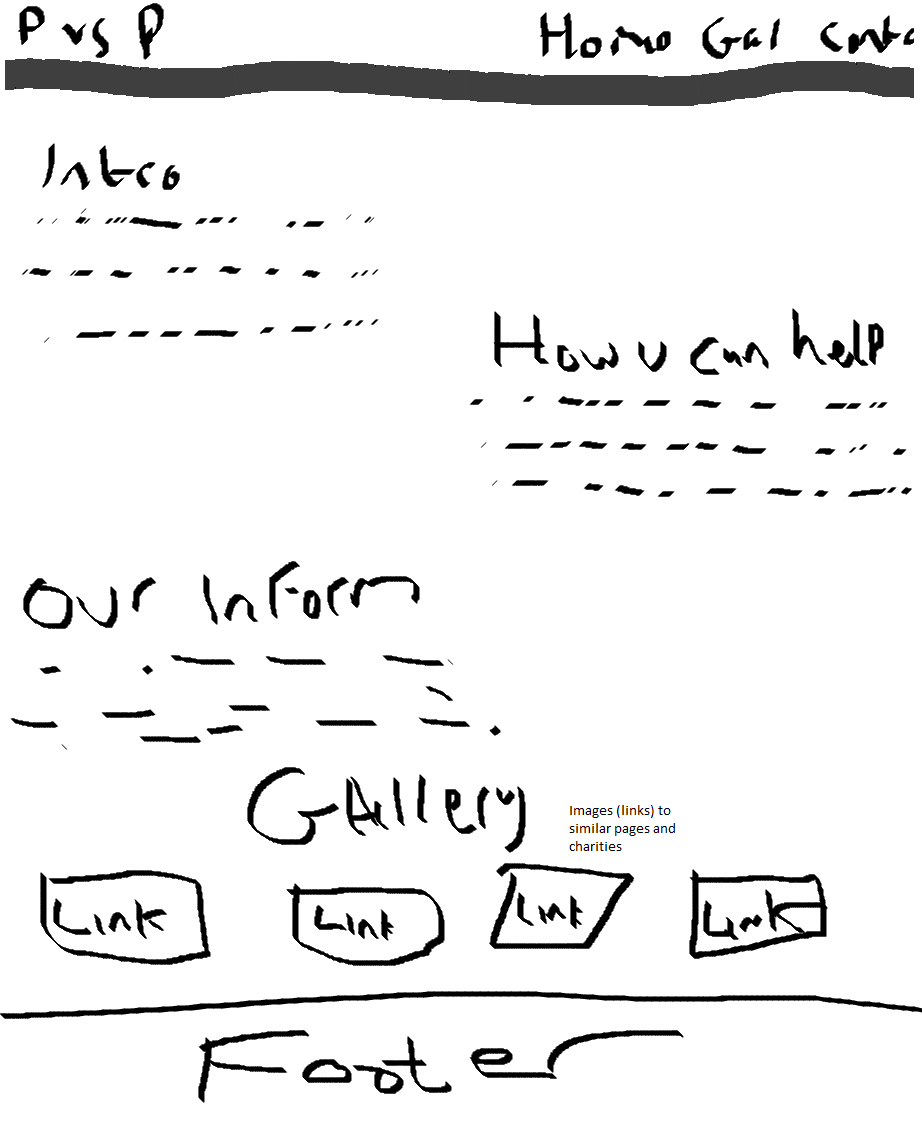 P vs P
Home Gal Conta
Intro
How u can help
Our Inform
GAllery
Images (links) to
similar pages and
charities
Link
Link
Link
Link
Footer